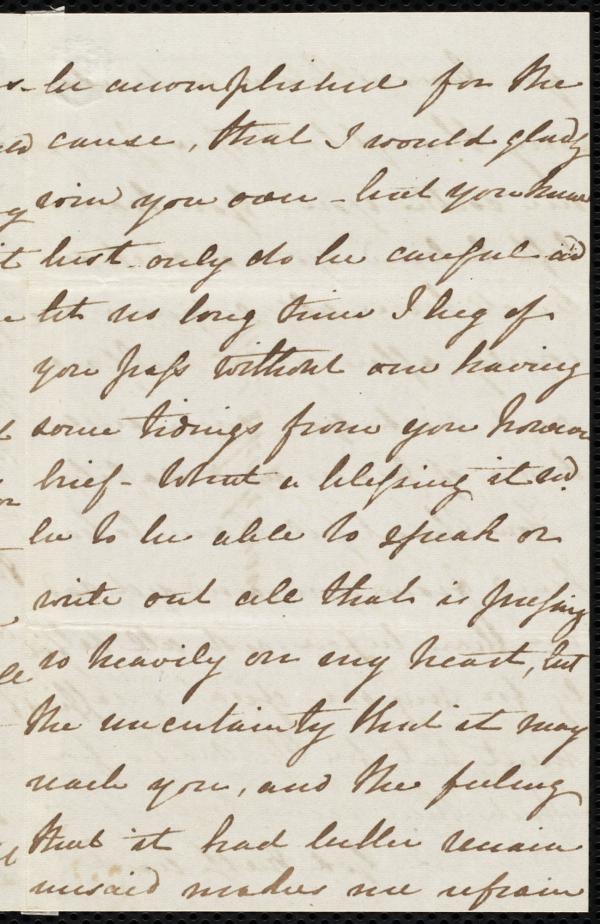 be accomplished for the
cause, that I would gladly
win you over - but you know
best - only do be careful and
let no long time I beg of
you pass without our having
some tidings from you however
brief - What a blessing it wd
be to be able to speak or
write out all that is pressing
so heavily on my heart, but
the uncertainty that it may
reach you, and the feeling
that it had better remain
unsaid makes me refrain